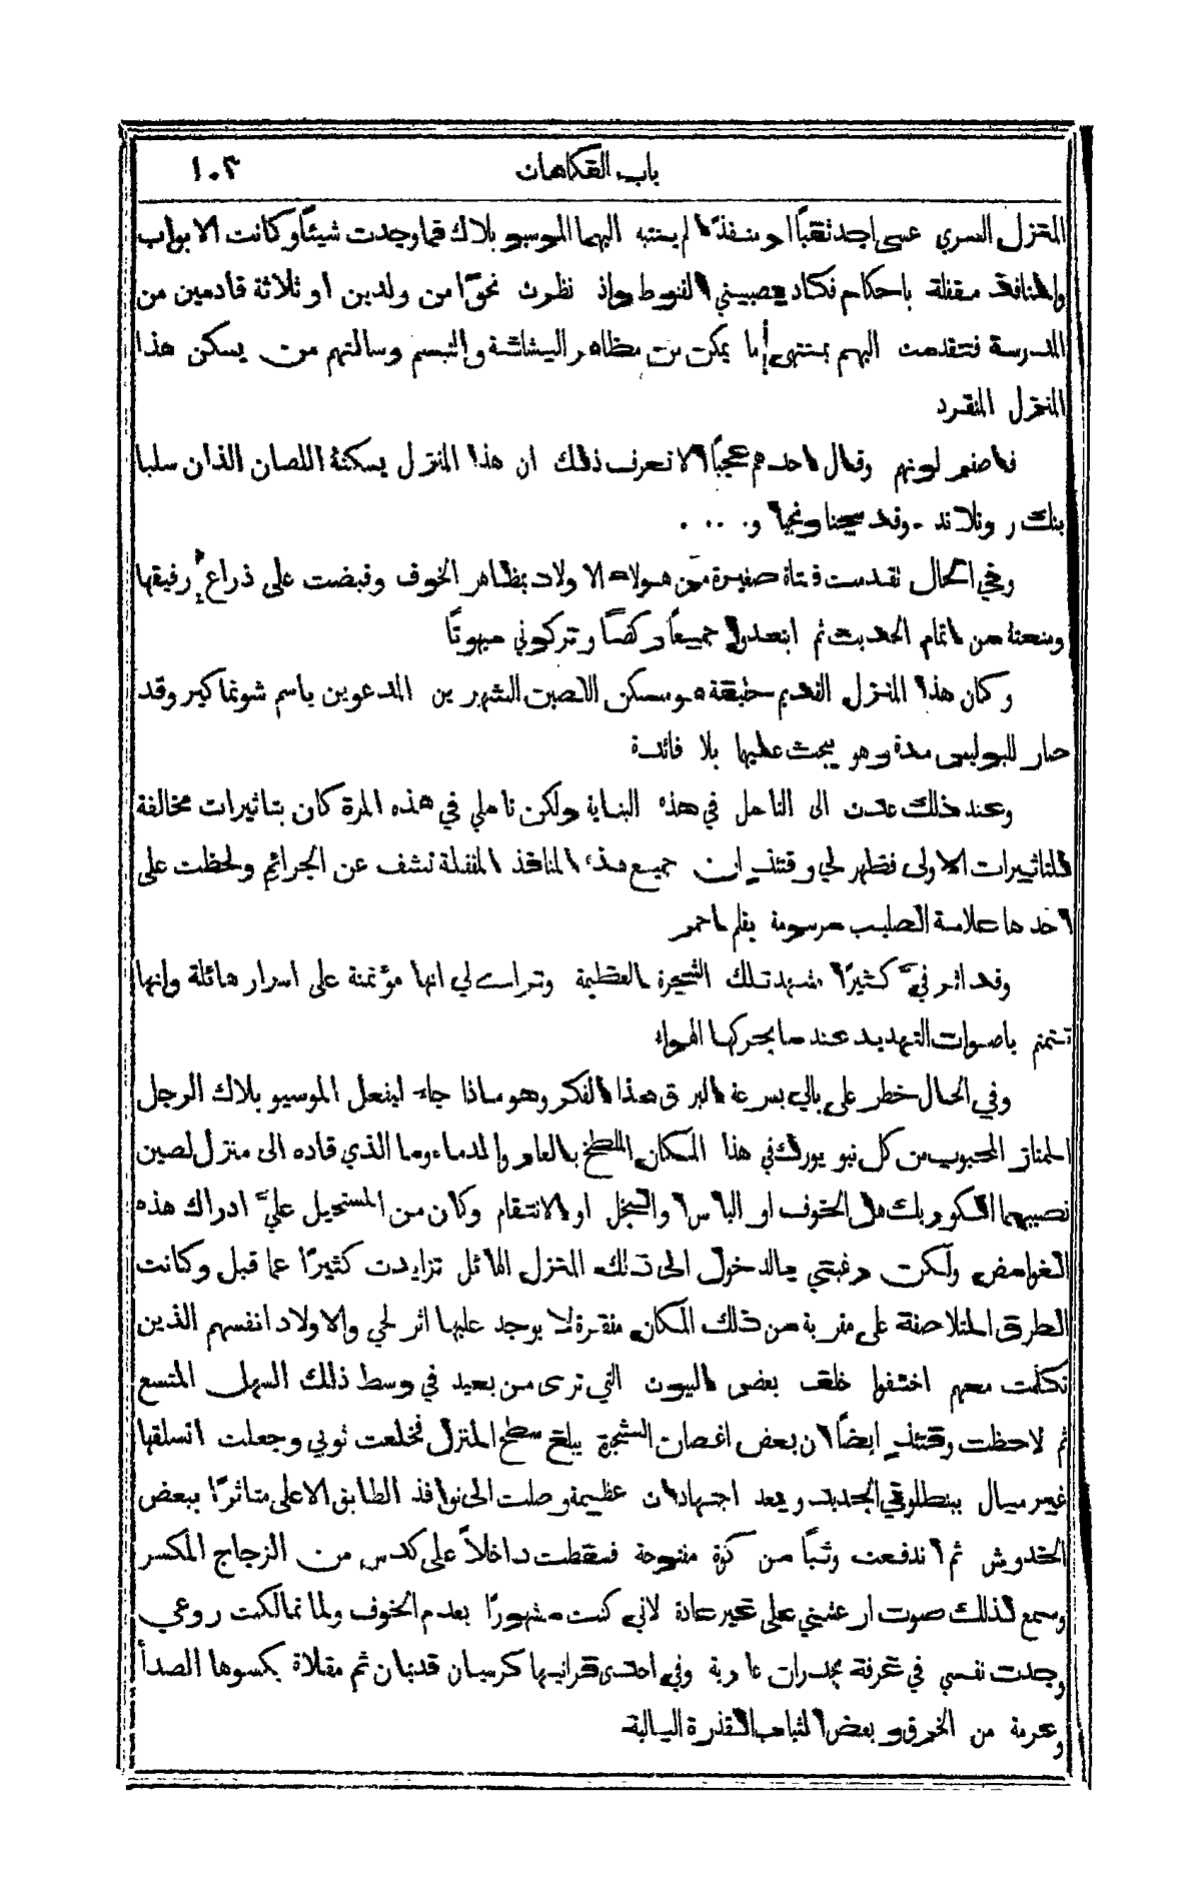 باب الفكاهات ١٠٣
المنزل السري عسى اجد ثقبًا او منفذًا لم ينتبه اليهما الموسيو بلاك فما وجدت شيئًا وكانت الابواب
والمنافذ مقفلة باحكام فكاد يصيبني القنوط واذ نظرت نحوًا من ولدين او ثلاثة قادمين من
المدرسة فتقدمت اليهم بمنتهى ما يمكن من مظاهر البشاشة والتبسم وسالتهم من يسكن هذا
المنزل المنفرد
فاصفر لونهم وقال احدهم عجبًا الا تعرف ذلك ان هذا المنزل يسكنهُ اللصان اللذان سلبا
بنك روتلاند . وقد سجنا ونجيا و. . . .
وفي الحال تقدمت فتاة صغيرة من هولاء الاولاد بظاهر الخوف وقبضت على ذراع رفيقها
ومنعتهُ من اتمام الحديث ثم ابتعدوا جميعًا ركضًا وتركوني مبهوتًا
وكان هذا المنزل القديم حقيقة هو مسكن اللصين الشهيرين المدعوين باسم شونماكير وقد
صار للبوليس مدة وهو يبحث عليهما بلا فائدة
وعند ذلك عدت الى التامل في هذه البناية ولكن تاملي في هذه المرة كان بتاثيرات مخالفة
للتاثييرات الاولى فظهر لي وقتئذٍ ان جميع هذه المنافذ المقفلة تشف عن الجرائم ولحظت على
احدها علامة الصليب مرسومة بقلم احمر
وقد اثر فيَّ كثيرًا مشهد تلك الشجرة العظيمة وتراءى لي انها مؤتمنة على اسرار هائلة وانها
تتمتم باصوات التهديد عند ما يحركها الهواء
وفي الحال خطر على بالي بسرعة البرق هذا الفكر وهو ماذا جاء ليفعل الموسيو بلاك الرجل
الممتاز المحبوب من كل نيو يورك في هذا المكان الملطخ بالعار والدماء وما الذي قاده الى منزل لصين
نصيبهما الكور بك هل الخوف او الياس او الخجل او الانتقام وكان من المستحيل عليَّ ادراك هذه
الغوامض ولكن رغبتي بالدخول الى ذلك المنزل الهائل تزايدت كثيرًا عما قبل وكانت
الطرق المتلاصقة على مقربة من ذلك المكان مقفرة لا يوجد عليها اثر لحي والاولاد انفسهم الذين
تكلمت معهم اختفوا خلف بعض البيوت التي ترى من بعيد في وسط ذلك السهل المتسع
ثم لاحظت وقتئذٍ ايضًا ان بعض اغصان الشجرة يبلغ سطح المنزل فخلعت ثوبي وجعلت اتسلقها
غير مبال ببنطلوني الجديد وبعد اجتهادات عظيمة وصلت الى نوافذ الطابق الاعلى متاثرًا ببعض
الخدوش ثم اندفعت وثبًا من كوة مفتوحة فسقطت داخلاً على كدس من الزجاج المكسر
وسمع لذلك صوت ارعبني على غير عادة لاني كنت مشهورًا بعدم الخوف ولما تمالكت روعي
وجدت نفسي في غرفة بجدرات عارية وفي احدى قرانيها كرسيان قديمان ثم مقلاة يكسوها الصدأ
وعرمة من الخرق وبعض الثياب القذرة البالية